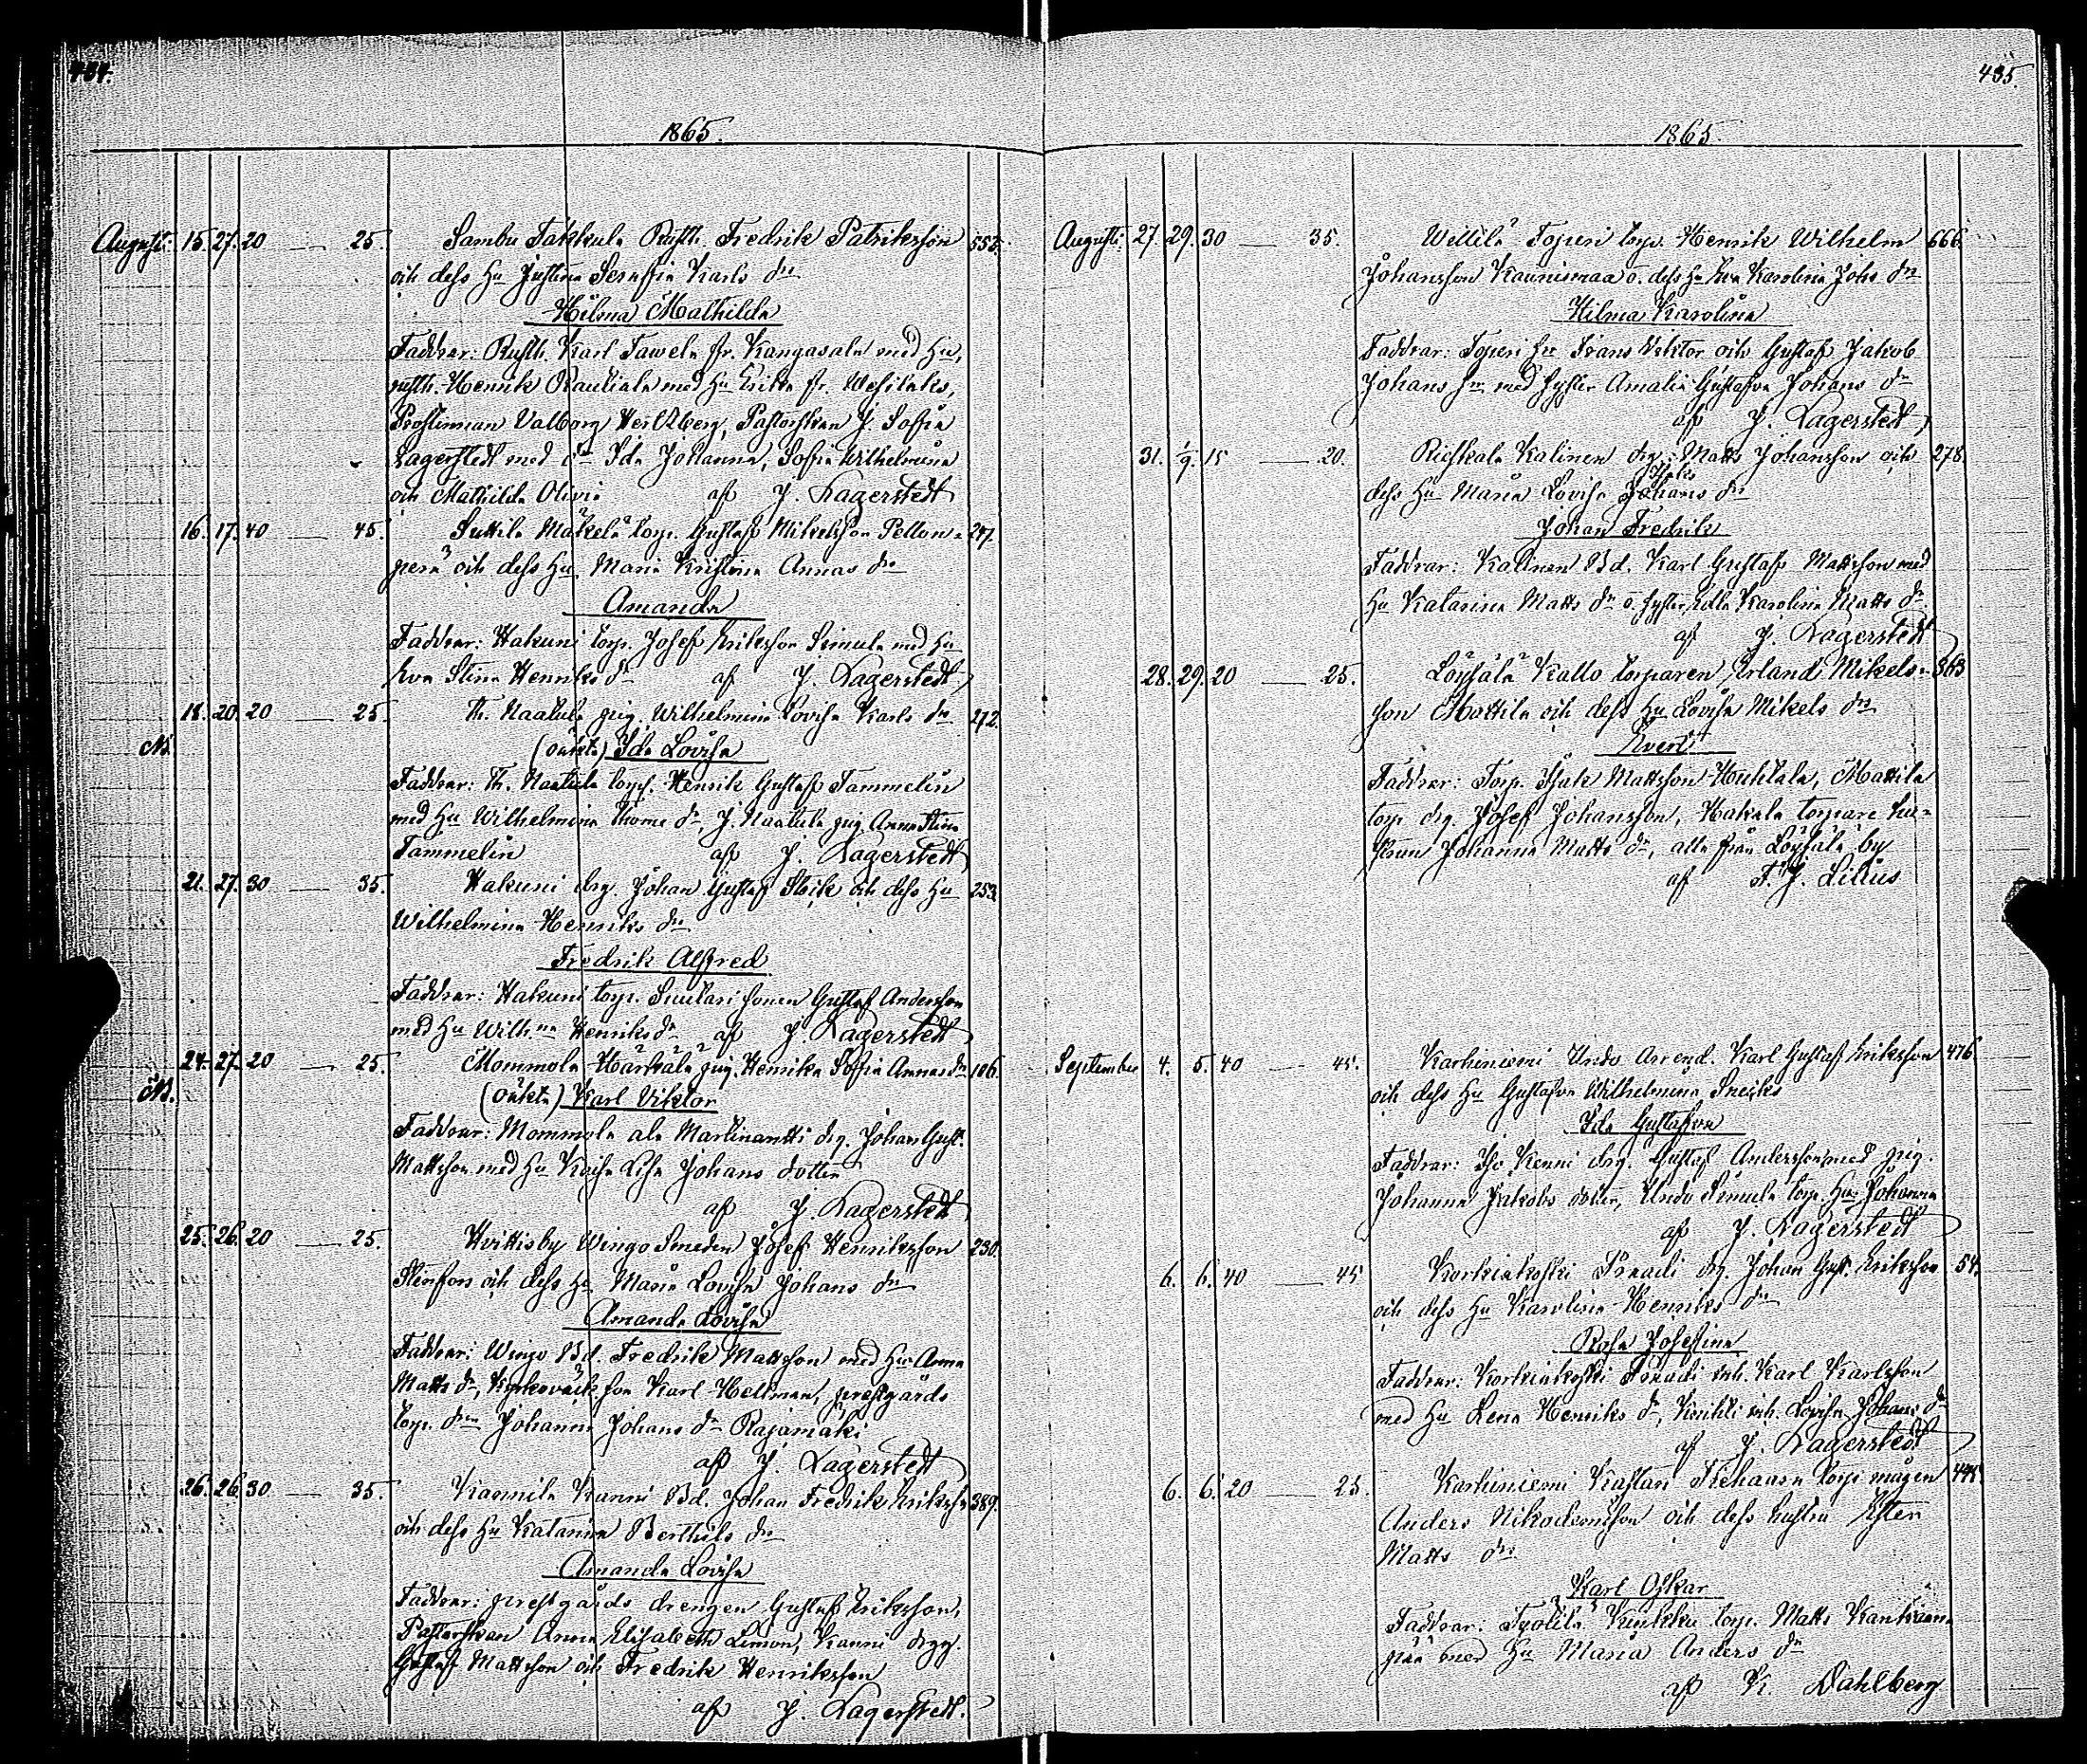 434.
1865.
Augusti. 15. 27. 20 — 25. Sambu Takkula Rusth. Fredrik Patriksson 553.
och dess Hu Justina Serafia Karls dr
Hilma Mathilda
Faddrar: Rusth. Karl Tawela fr. Kangasala med Hu,
rusth. Henrik Rautiala med Hu Erika fr. Wesilaks,
Prostinnan Valborg Hertzberg, Pastorskan J. Sofia
Lagerstedt med Ida Johanna, Sofia Wilhelmina
och Mathilda Olivia af J. Lagerstedt
16. 17. 40 — 45. Suttila Mäkelä torp. Gustaf Mikelsson Pellon- 247.
perä och dess Hu Maria Kristina Annas dr
Amanda
Faddrar: Hakuni torp. Josef Eriksson Simula med Hu
Eva Stina Henriks dr af J. Lagerstedt
18. 20. 20 — 25. Th. Naatula pig. Wilhelmina Lovisa Karls dr 272.
(oäkta) Ida Lovisa
Faddrar: Th. Naatula torp. Henrik Gustaf Tammelin
med Hu Wilhelmina Thome dr, J. Naatula pig. Anna Stina
Tammelin af J. Lagerstedt
21. 27. 30 — 35. Hakuni drg. Johan Gustaf Sloik och dess Hu 253.
Wilhelmina Henriks dr
Fredrik Alfred
Faddrar: Hakuni torp. Suutari sonen Gustaf Andersson
med Hu Wilh.na Henriks dr af J. Lagerstedt
24. 27. 20 — 25. Mommola Härkälä pig. Henrika Sofia Annas dr 106.
(oäkta) Karl Viktor
Faddrar: Mommola ala Martinantti drg. Johan Gust.
Mattsson med Hu Kaisa Lisa Johans dotter
af J. Lagerstedt
25. 26. 20 — 25. Hvittisby Wingo Smeden Josef Henriksson 230.
Stenfors och dess Hu Maria Lovisa Johans dr
Amanda Lovisa
Faddrar: Wingo Bd. Fredrik Mattsson med Hu Anna
Matts dr, Kyrkovakt. son Karl Hellman, prestgårds
torp. drn Johanna Johans dr Rajamäki
af J. Lagerstedt
26. 26. 30 — 35. Kannila Kanni Bd. Johan Fredrik Eriksson 389.
och dess Hu Katarina Berthils dr
Amanda Lovisa
Faddrar: prestgårds drengen Gustaf Eriksson,
Pastorskan Anna Elisabeth Limon, Kanni drgg.
Gustaf Mattsson och Fredrik Henriksson
af J. Lagerstedt.
435.
1865.
Augusti. 27. 29. 30 — 35. Willilä Topuri torp. Henrik Wilhelm 666.
Johansson Kaunismaa o. dess Hu Eva Karolina Johs dr
Hilma Karolina
Faddrar: Topuri sr Frans Viktor och Gustaf Jakob
Johans sr med syster Amalia Gustafva Johans dr
af J. Lagerstedt
31. 1/9. 15 — 20. Rieskala Kalinen drg. Matts Johansson och 278.
dess Hu Maria Lovisa Johans dr
Johan Fredrik
Faddrar: Kalinen Bd. Karl Gustaf Mattsson med
Hu Katarina Matts dr o. syster Edla Karolina Matts dr
af J. Lagerstedt
28. 29. 20 — 25. Löysälä Kallo torparen Erland Mikels- 363
son Mattila och dess Hu Lovisa Mikels dr
Evert
Faddrar: Torp. Isak Mattsson Huhtala, Mattila
torp. drg. Josef Johansson, Hakala torpare hu-
strun Johanna Matts dr, alla från Löysälä by
af F. J. Lilius
September 4. 5. 40 — 45. Karhiniemi Undo Arrend. Karl Gustaf Eriksson 476.
och dess Hu Gustafva Wilhelmina Sneiks
Ida Gustafva
Faddrar: Iso Kenni drg. Gustaf Andersson med pig.
Johanna Jakobs doter, Undo Simula torp. Hu Johanna
af J. Lagerstedt
6. 6. 40 — 45 Korkiakoski Prakli drg. Johan Gust. Eriksson 54.
och dess Hu Karolina Henriks dr
Rosa Josefina
Faddrar: Korkiakoski inh. Karl Karlsson
med Hu Lena Henriks dr, inh. Lovisa Johans dr
af J. Lagerstedt
6. 6. 20 — 25. Karhiniemi Kastari torp. mågen
Anders Nikodemsson och dess hustru Ester
Matts dr
Karl Oskar
Faddrar: Työlilä Kuukku torp. Matts Kankaan-
pää med Hu Maria Anders dr
af K. Dahlberg